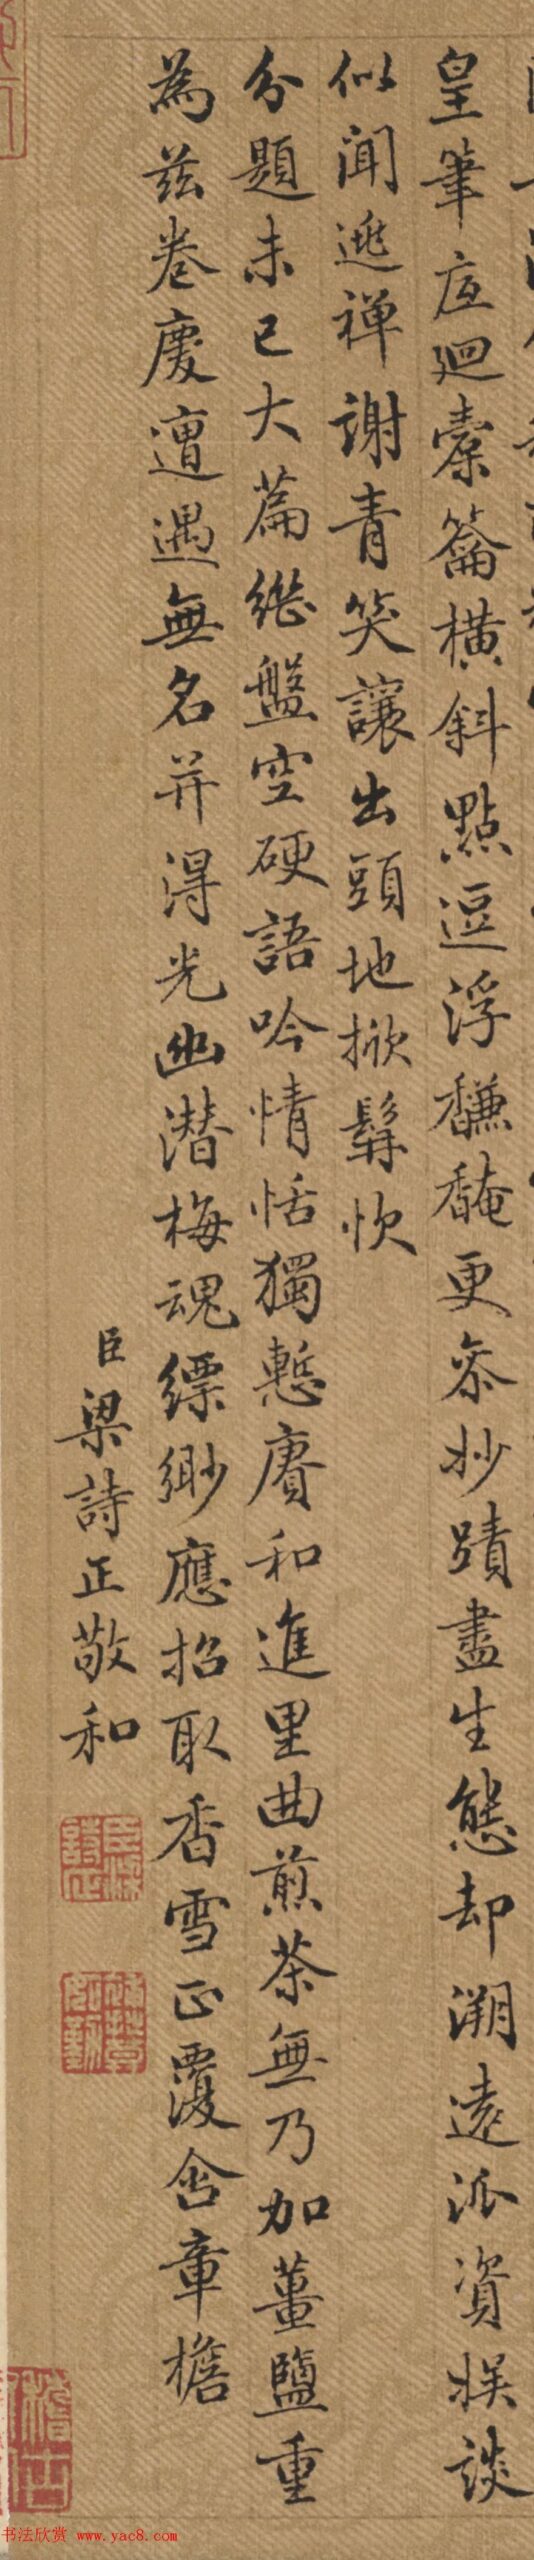 皇筆庶迴橐籥橫斜點逗浮馦馣更參妙蹟盡生態却溯遠派資娛談
似聞逃禪謝青笑讓出頭地掀髯忺
分題未已大篇繼盤空硬語吟情恬獨慙賡和進里曲煎茶無乃加薑鹽重
為茲卷慶遭遇無名并得光幽潛梅魂縹緲應招取香雪正覆含章檐
臣梁詩正敬和
臣梁詩正
稽古
书法欣赏 www.yac8.com